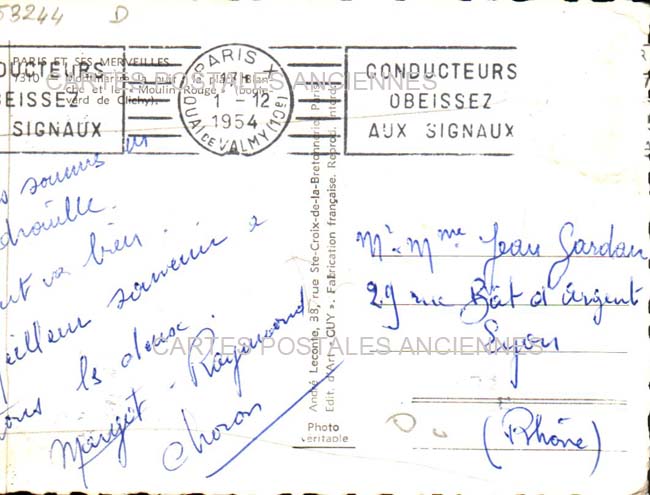 53244 D
PARIS ET SES MERVEILLES
7310 - Montmartre la nuit : la place Blan-
che et le « Moulin-Rouge » (boule-
vard de Clichy).
CARTES POSTALES ANCIENNES
DUCTEURS
BEISSEZ
SIGNAUX
PARIS X
17H
1 - 12
1954
QUAI DE VALMY (10e)
CONDUCTEURS
OBEISSEZ
AUX SIGNAUX
sommes en
va bien.
meilleur souvenir à
tous les deux.
Margot - Raymond
Choron
André Leconte, 38, rue Ste-Croix-de-la-Bretonnerie, Paris
Edit. d'Art « GUY ». Fabrication française. Reprod. interdite
Photo
véritable
Mr Mme Jean Gardan
29 rue Bât d'Argent
Lyon
CARTES POSTALES ANCIENNES
(Rhône)